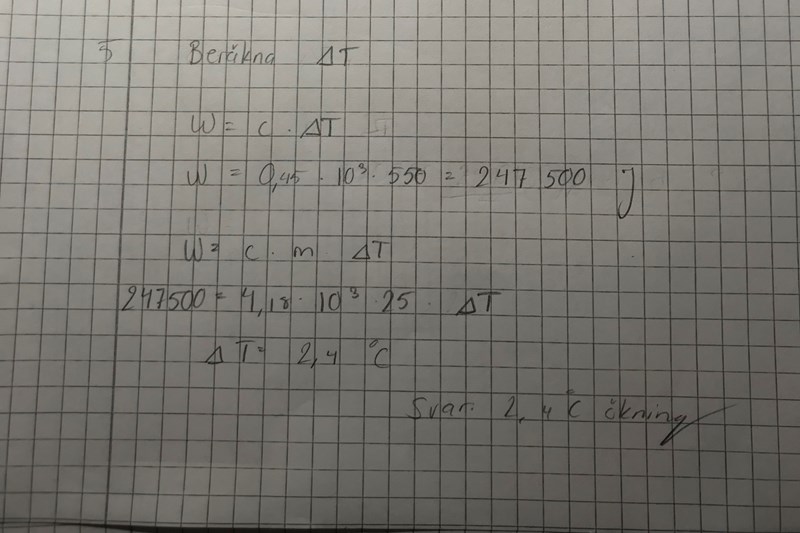 5 Beräkna ΔT
W = c · ΔT
W = 0,45 · 10³ · 550 = 247 500 J
W = c · m ΔT
247500 = 4,18 · 10³ · 25 · ΔT
ΔT = 2,4 °C
Svar. 2,4°C ökning